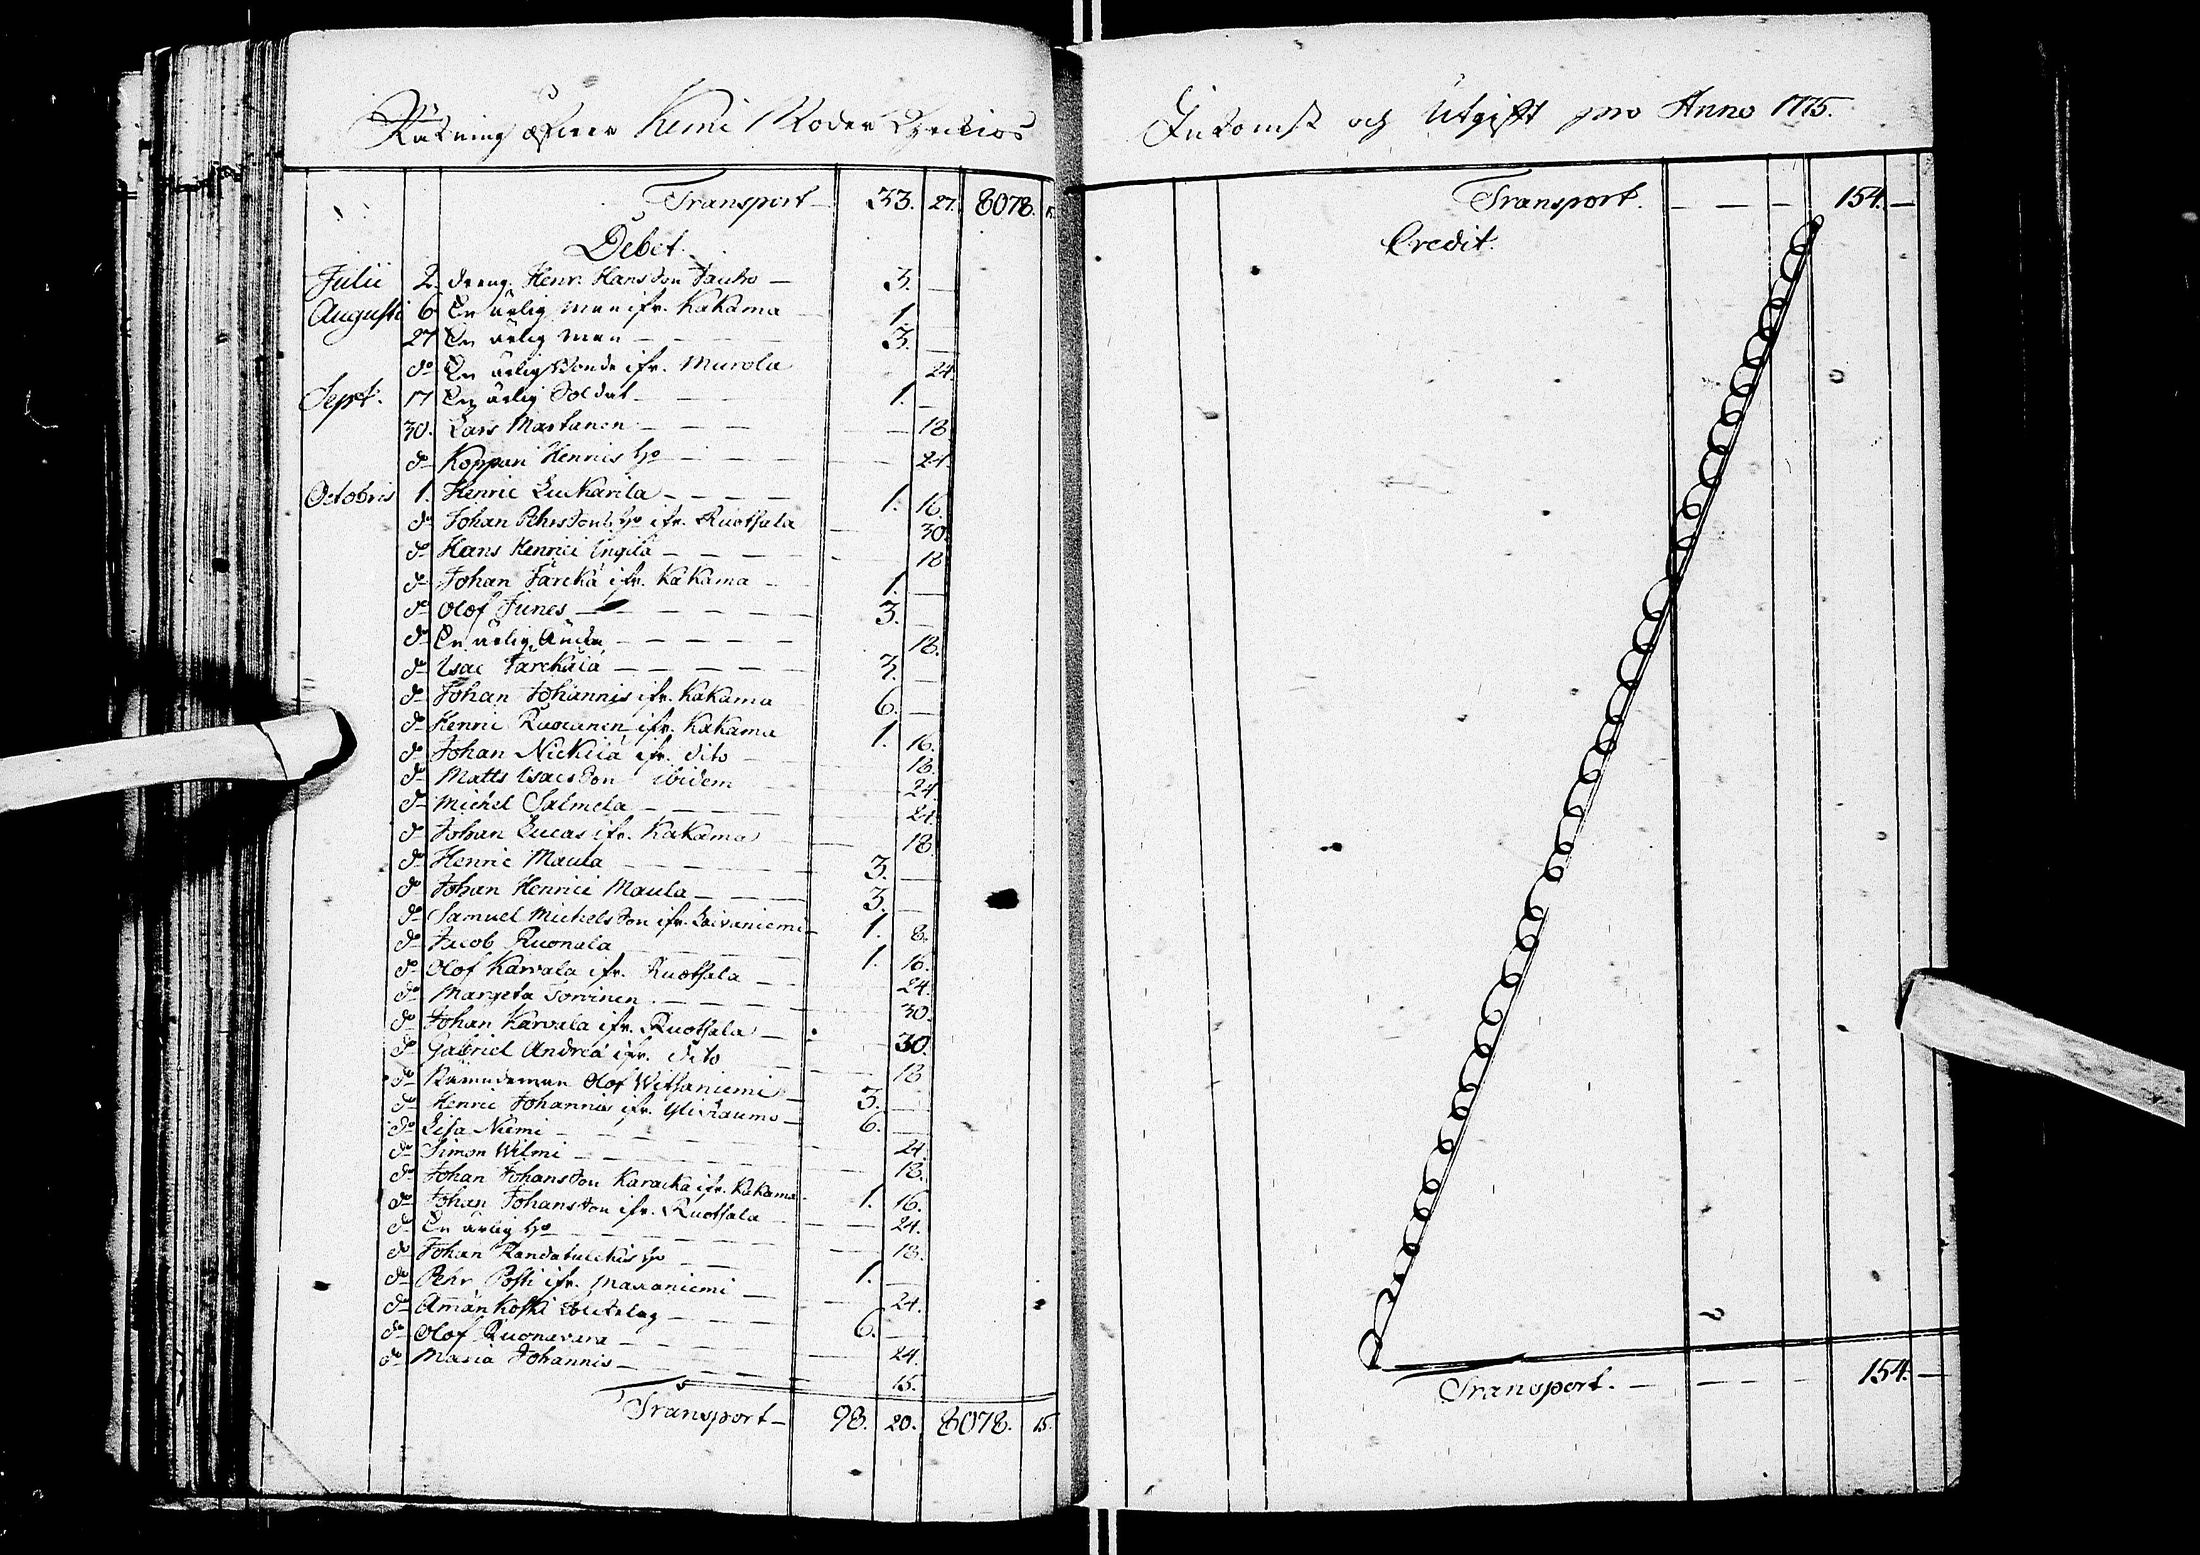 Räkning öfver Kemi Moder Kyrckios
Transport 33. 27. 8078. 15.
Debet.
Julii 2. dreng. Henr. Hansson Tauho — 3. —
Augusti 6 En ärlig man ifr. Kakama 1. —
27 En ärlig man — — — — 3. —
do En ärlig Bonde ifr. Murola 24.
Sept. 17 En ärlig Soldat — — — 1. —
30. Lars Martanen — — — — 18.
do Koppari Hennis Ho — — — — 24.
Octobris 1. Henric Luckarila — — — — 1. 16.
do Johan Pehrssons Ho ifr. Ruotsala — 30.
do Hans Henrici Ingilä — — — — 18
do Johan Färckä ifr. Kakama — 1. —
do Olof Junes — — — — 3. —
do En ärlig Äncka — — — — — 18.
do Isac — — — — — 3. —
do Johan Johannis ifr. Kakama 6. —
do Henric ifr. Kakama 1. 16.
do Johan ifr. dito — 18.
do Matts Isacsson ibidem 24
do Michel Salmela — — — 24.
do Johan Lucas ifr. Kakama — 18.
do Henric Maula — — — 3. —
do Johan Henrici Maula — — — 3. —
do Samuel Michelsson ifr. Laivaniemi 1. 8.
do Jacob Ruonala — — — — 1. 16.
do Olof Karvala ifr. Ruotsala — — 24.
do Margeta Torvinen — — — — 30.
do Johan Karvala ifr. Ruotsala — 30.
do Gabriel Andreæ ifr. dito — — 18
do Nämndeman Olof Witsaniemi — 3. —
do Henric Johannis ifr. Yliraumo — 6. —
do Lisa Niemi — — — — — 24.
do Simon Wilmi — — — — — 18.
do Johan Johansson ifr. Kakama 1. 16.
do Johan Johansson ifr. Ruotsala — 24.
do En ärlig Ho — — — — — 18.
do Johan Ho — — 1. —
do Pehr Posti ifr. Maxaniemi — 24.
do Ämmänkoski — — — 6. —
do Olof Ruonavara — — — 24.
do Maria Johannis — — — — 15.
Transport — 98. 20. 8078. 15.
Inkomst och Utgift pro Anno 1775.
Transport. — — — 154. —
Credit.
Transport. — — — — 154. —